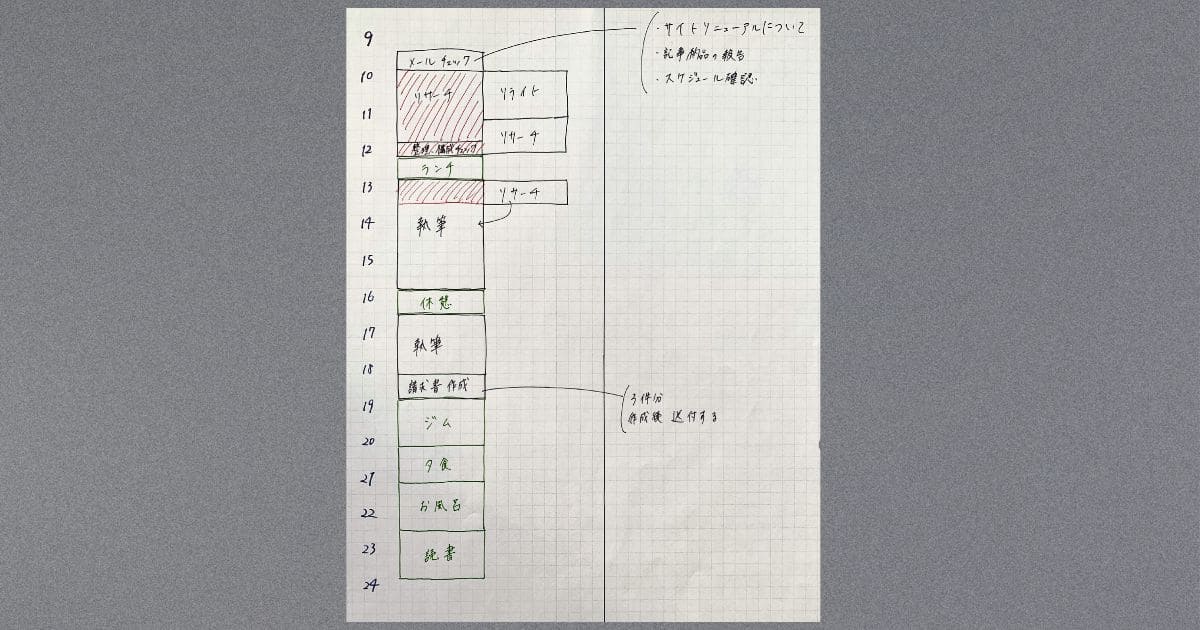 9
メールチェック
・サイトリニューアルについて
・記事納品の報告
・スケジュール確認
10
リサーチ
リライト
11
リサーチ
12
整理/構成チェック
ランチ
13
リサーチ
14
執筆
15
16
休憩
17
執筆
18
請求書作成
3件分
作成後 送付する
19
ジム
20
夕食
21
お風呂
22
23
読書
24